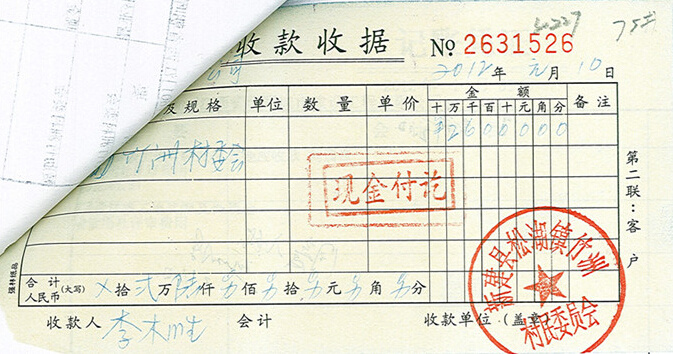 收款收据 № 2631526
2012年 元月10日
及规格 单位 数量 单价 金额 备注
十万千百十元角分
¥2600000
竹洲村委会
现金付讫
第二联：客户
新建县松湖镇竹洲
村民委员会
合计
人民币(大写) ×拾贰万陆仟零佰零拾零元零角零分
收款人 李木生 会计 收款单位(盖章
强林纸品